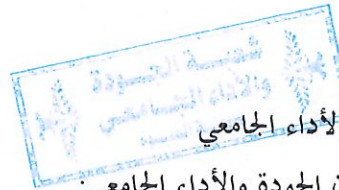 شعبة الجودة
والأداء الجامعي
لأداء الجامعي
الجودة والأداء الجامعي: